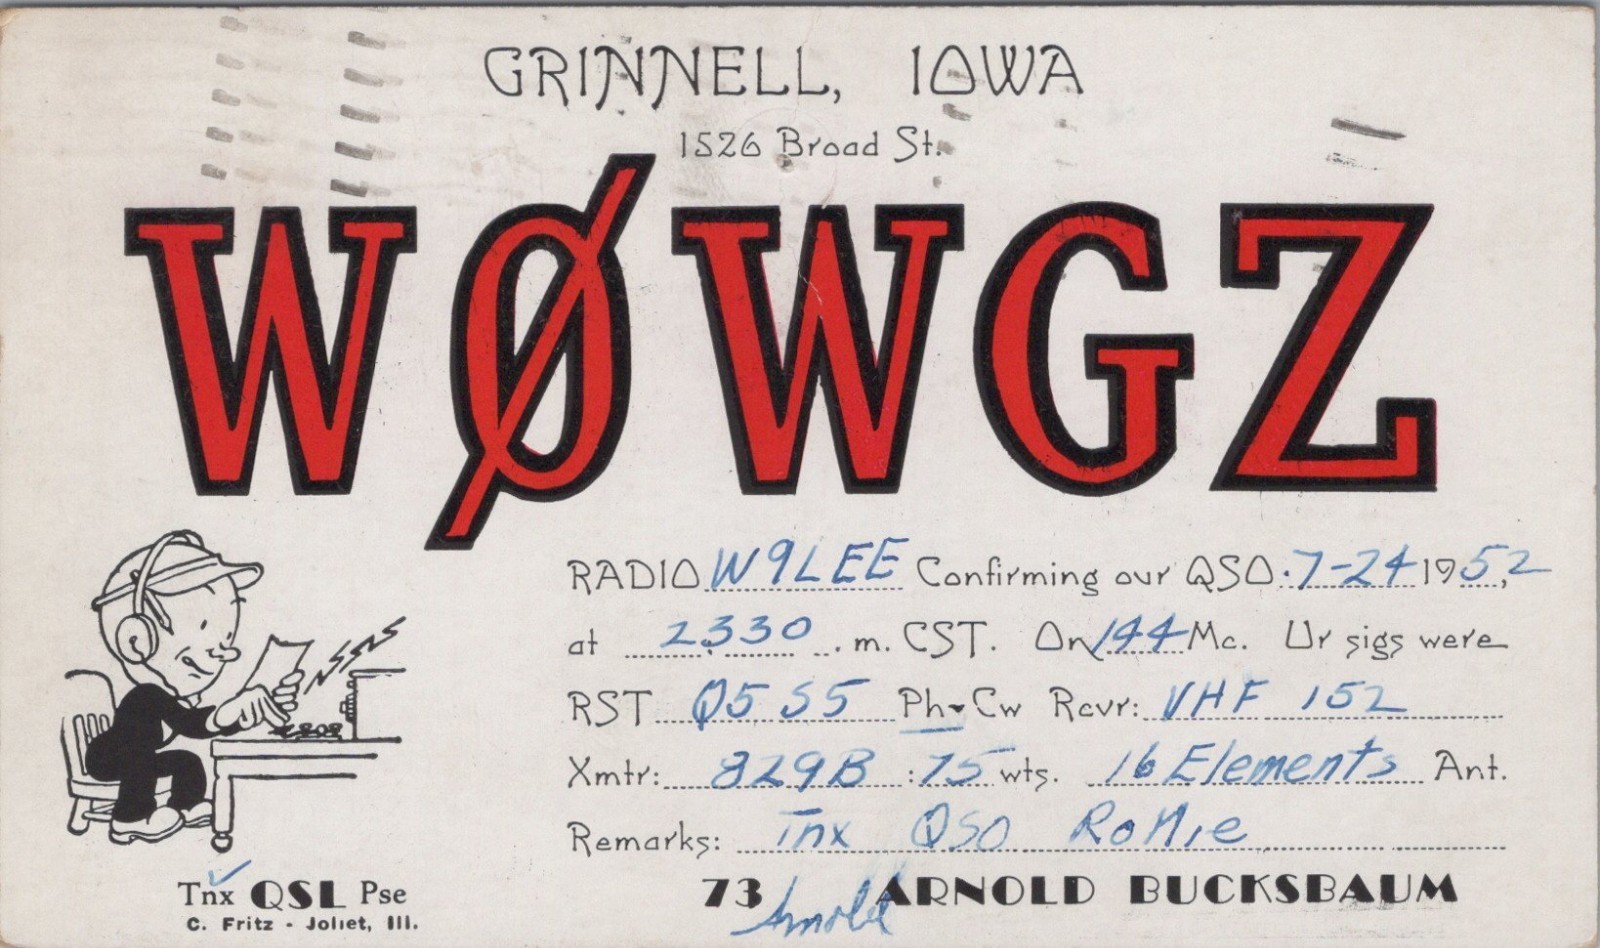 GRINNELL, IOWA
1526 Broad St.
WØWGZ
RADIO W9LEE Confirming our QSO 7-24 1952,
at 2330 . m. CST. On 144 Mc. Ur sigs were
RST Q5 S5 Ph-Cw Rcvr: VHF 152
Xmtr: 829B : 75 wts. 16 Elements Ant.
Remarks: Tnx QSO
Tnx QSL Pse
C. Fritz - Joliet, Ill.
73 Arnold ARNOLD BUCKSBAUM